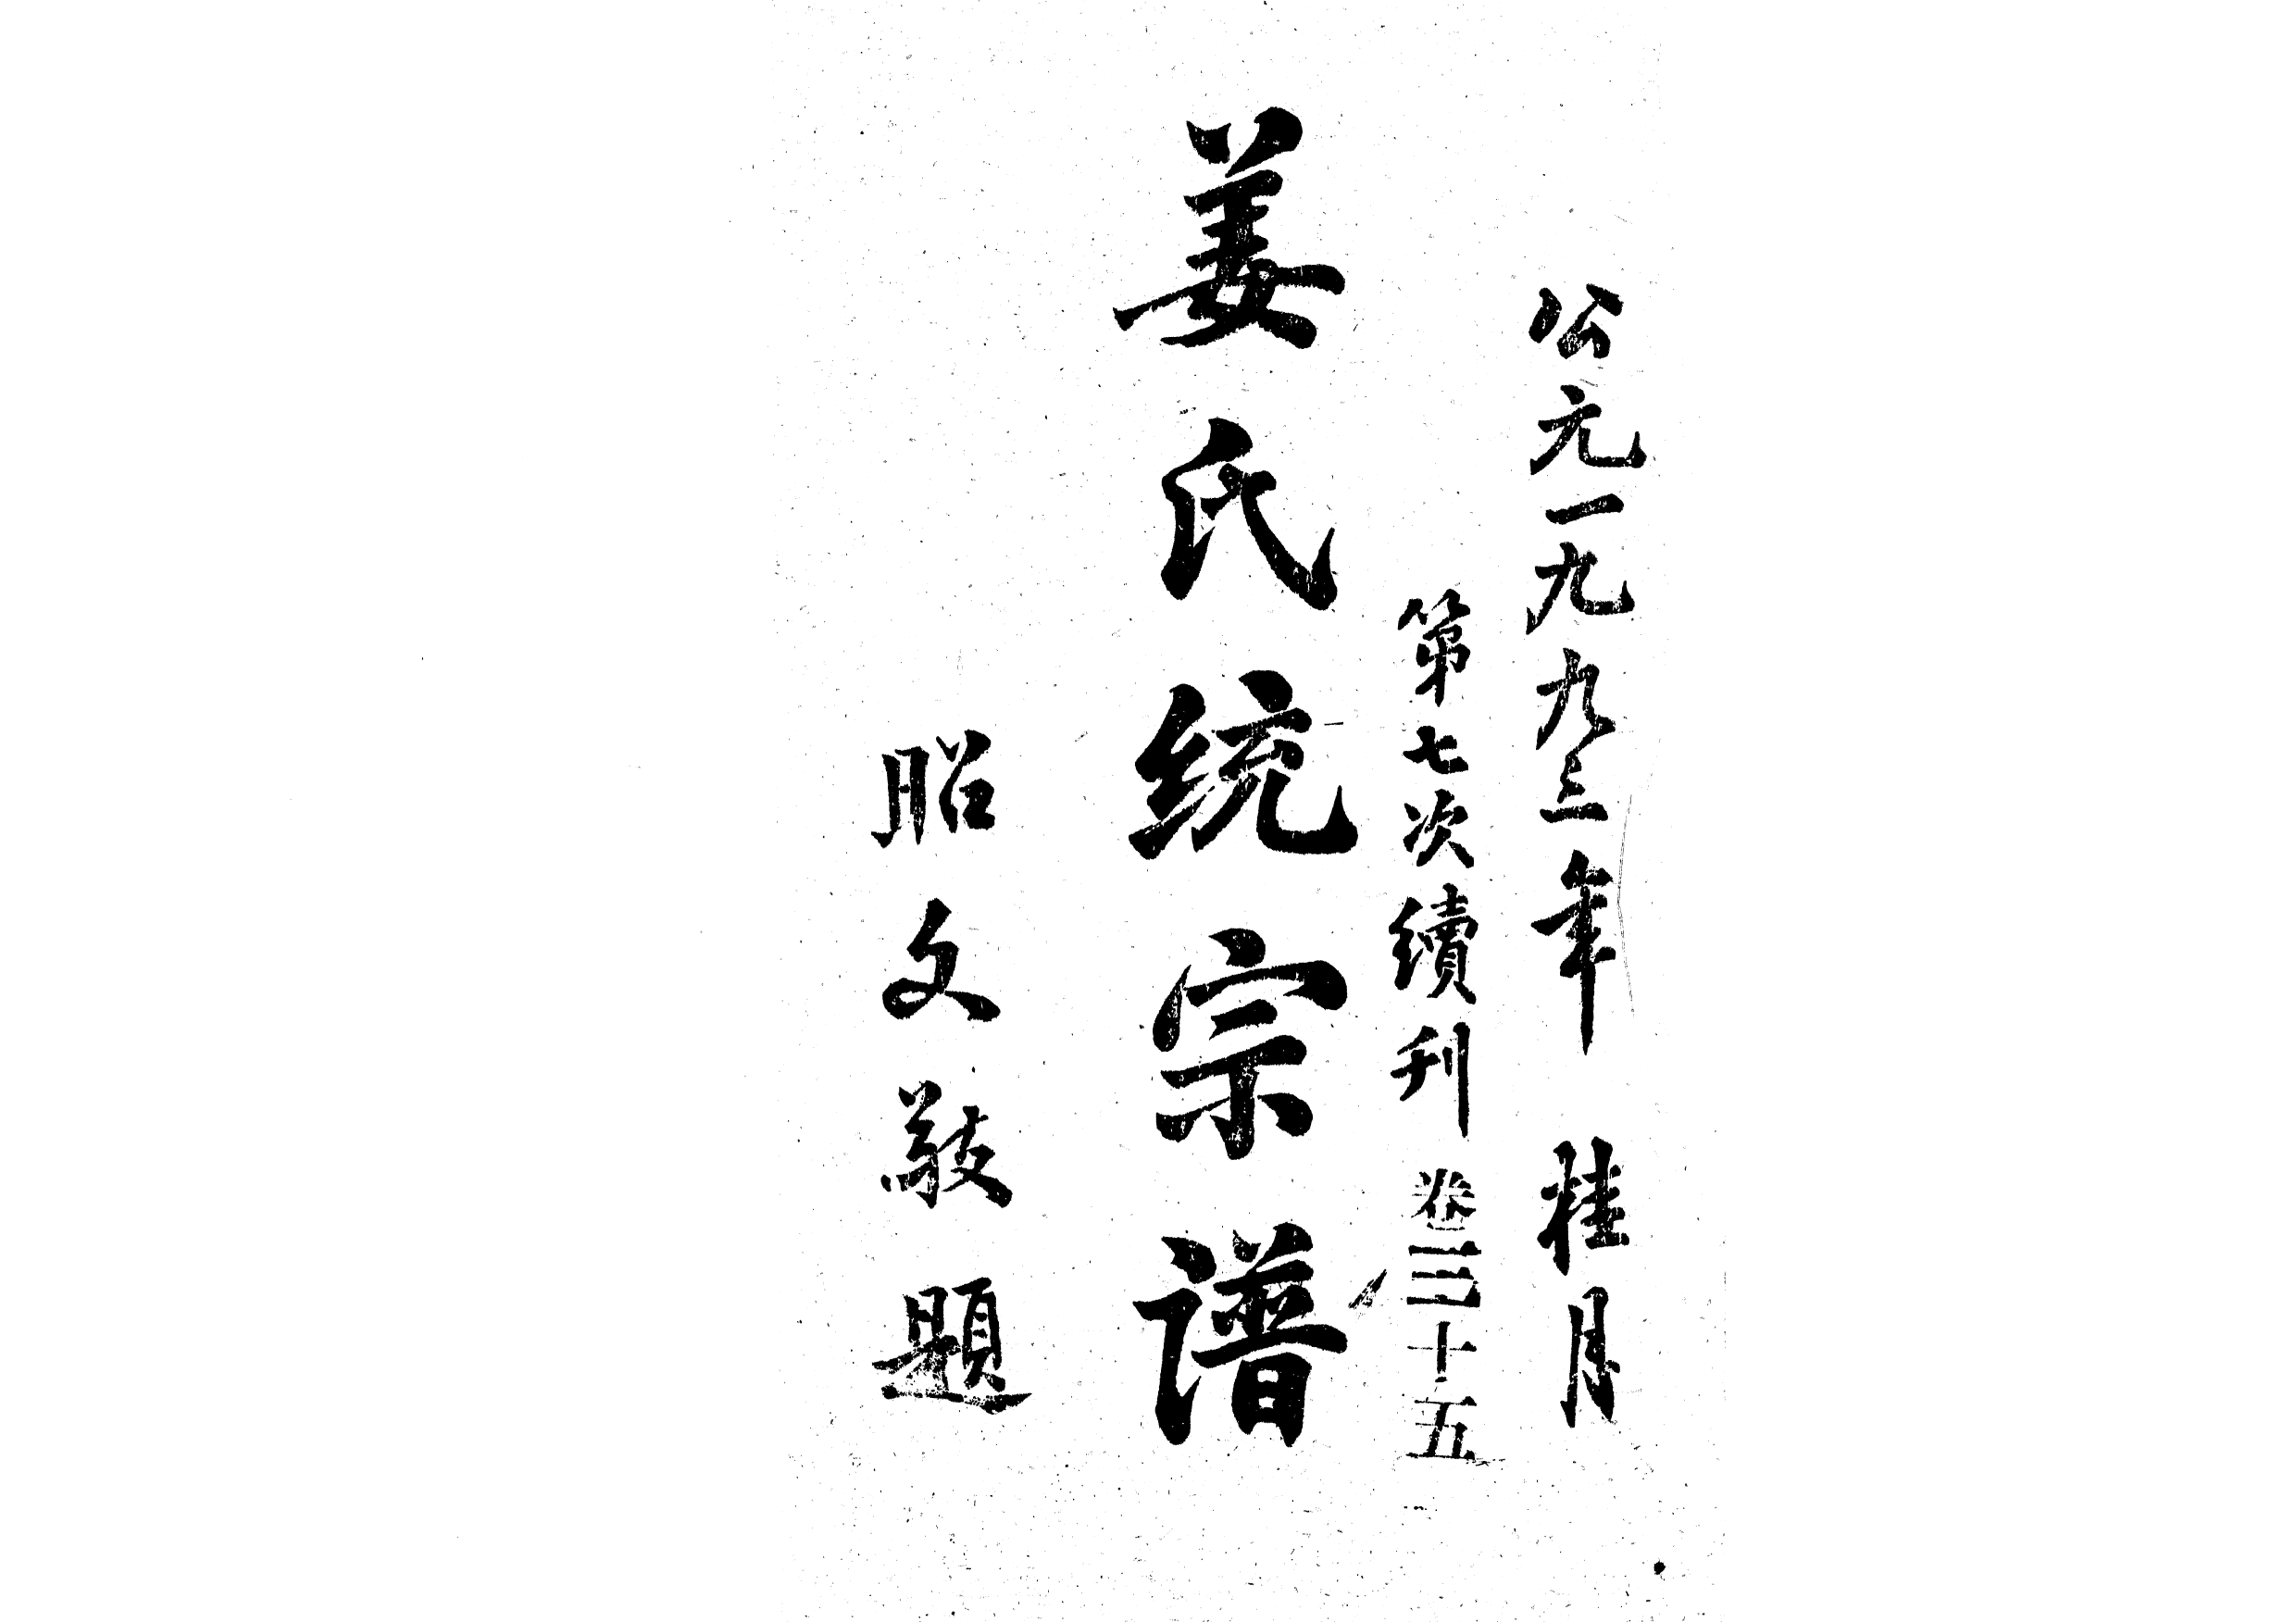 公元一九九三年 桂月
第七次續刊 卷三十五
姜氏统宗谱
昭文敬題